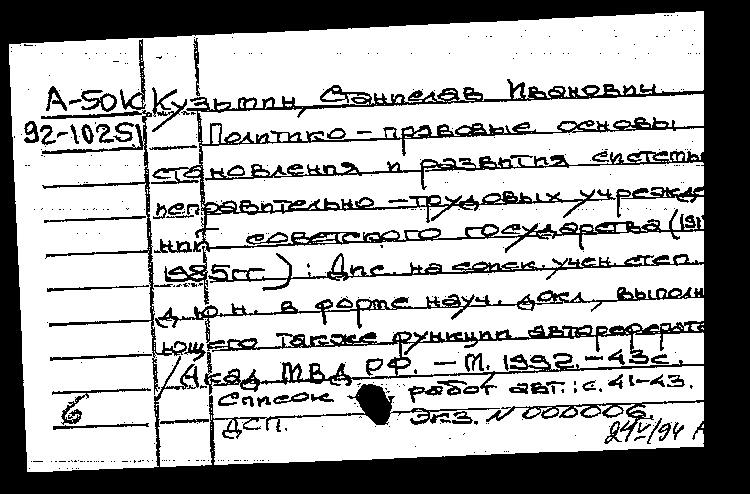 А-50К Кузьмин, Станислав Иванович
92-10251 Политико-правовые основы
становления и развития системы
исправительно-трудовых учрежде
ний советского государства (191
1985гг.): Дис. на соиск. учен. степ.
д.ю.н. в форме науч. докл., выполн
ющего также функции автореферата
/Акад. МВД РФ. - М., 1992. - 43с.
Список работ авт.: с. 41-43.
6 ДСП. Экз. N 000006.